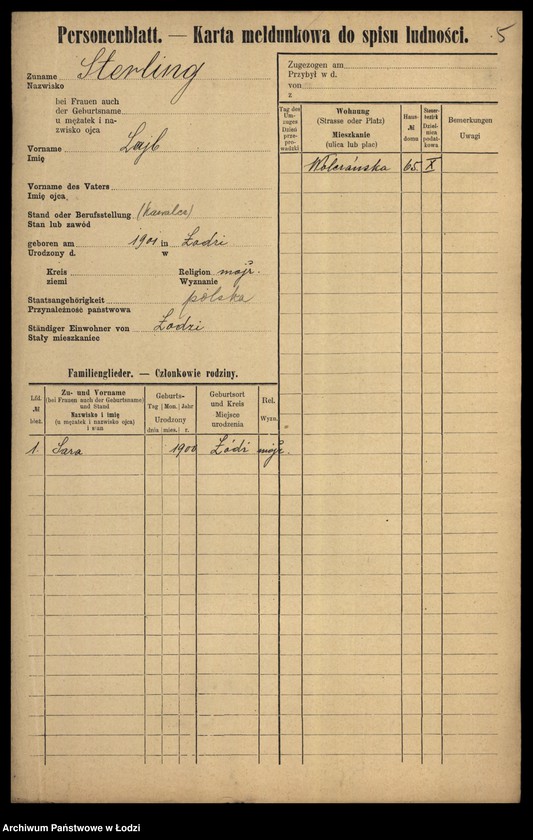 Personenblatt. — Karta meldunkowa do spisu ludności.
5
Zuname Sterling
Nazwisko
bei Frauen auch
der Geburtsname
u mężatek i na-
zwisko ojca
Vorname Lajb
Imię
Vorname des Vaters
Imię ojca
Stand oder Berufsstellung (Kawaler)
Stan lub zawód
geboren am 1901 in Łodzi
Urodzony d. w
Kreis Religion mojż.
ziemi Wyznanie
Staatsangehörigkeit polska
Przynależność państwowa
Ständiger Einwohner von Łodzi
Stały mieszkaniec
Zugezogen am
Przybył w d.
von
z
Tag des Um-zuges Dzień prze-pro-wadzki
Wohnung (Strasse oder Platz) Mieszkanie (ulica lub plac)
Haus- № domu
Steuer-bezirk Dziel-nica podat-kowa
Bemerkungen Uwagi
Wólczańska 65. X
Familienglieder. — Członkowie rodziny.
Lfd. № bież.
Zu- und Vorname (bei Frauen auch der Geburtsname) und Stand Nazwisko i imię (u mężatek i nazwisko ojca) i stan
Geburts- Tag Mon. Jahr Urodzony dnia mies. r.
Geburtsort und Kreis Miejsce urodzenia
Rel. Wyzn.
1. Sara 1900 Łódź mojż.
Archiwum Państwowe w Łodzi